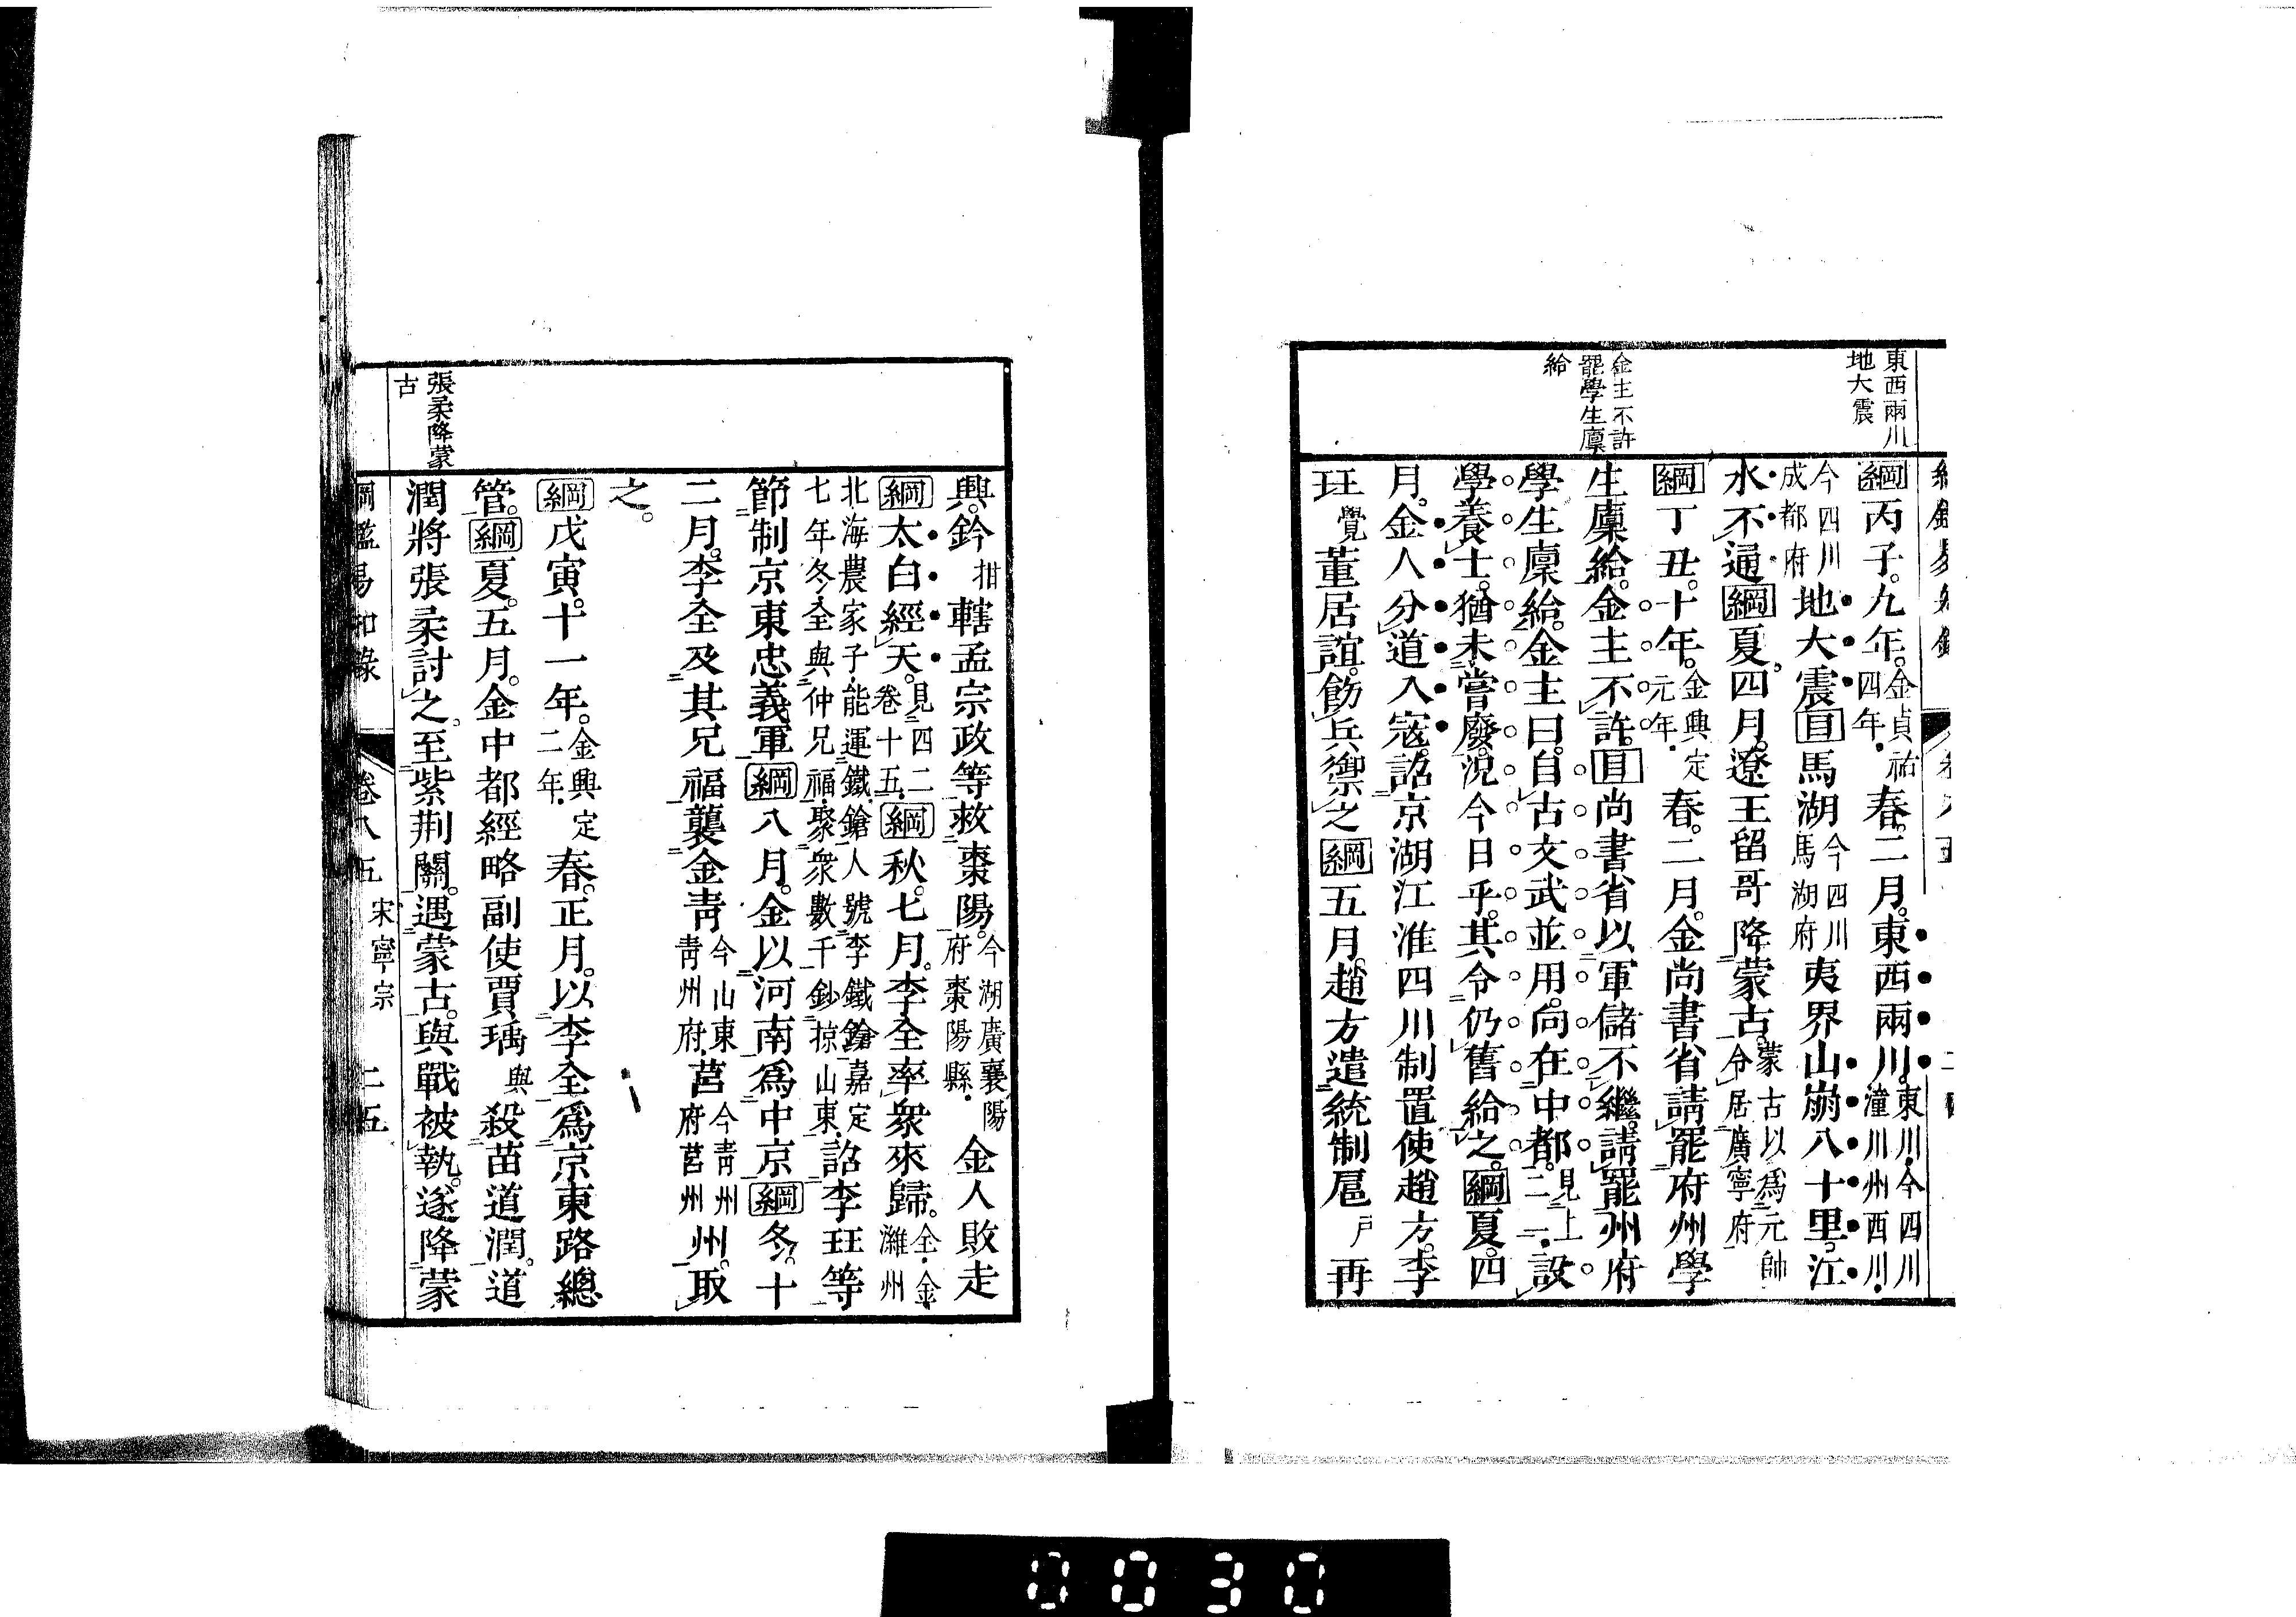 東西兩川
地大震
金主不許
罷學生廩
給
綱丙子。九年。金貞祐四年。春。二月。東西兩川。東川。今四川潼川州西川。
今四川成都府地大震目馬湖今四川馬湖府夷界山崩八十里。江
水不通綱夏。四月。遼王留哥降蒙古。蒙古以爲元帥令居廣寧府
綱丁丑。十年。金興定元年。春。二月。金尚書省請罷府州學
生廩給。金主不許。目尚書省以軍儲不繼。請罷州府
學生廩給。金主曰。自古文武並用。向在中都。見上二一。設
學養士。猶未嘗廢。況今日乎。其令仍舊給之。綱夏。四
月。金人分道入寇。詔京湖江淮四川制置使趙方。李
玨覺董居誼。飭兵禦之綱五月。趙方遣統制扈戶再
興。鈐拑轄孟宗政等救棗陽。今湖廣襄陽府棗陽縣。金人敗走
綱太白經天。見四二卷十五。綱秋。七月。李全率衆來歸。全。金濰州
北海農家子。能運鐵鎗。人號李鐵鎗。嘉定七年冬。全與仲兄福。聚衆數千鈔掠山東。詔李玨等
節制京東忠義軍綱八月。金以河南爲中京綱冬。十
二月。李全及其兄福襲金青今山東青州府莒今青州府莒州州。取
之。
綱戊寅。十一年。金興定二年。春。正月。以李全爲京東路總
管。綱夏。五月。金中都經略副使賈瑀與殺苗道潤。道
潤將張柔討之。至紫荆關。遇蒙古。與戰被執。遂降蒙
張柔降蒙
古
綱鑑易知錄 卷八五 宋寧宗 二五
0030